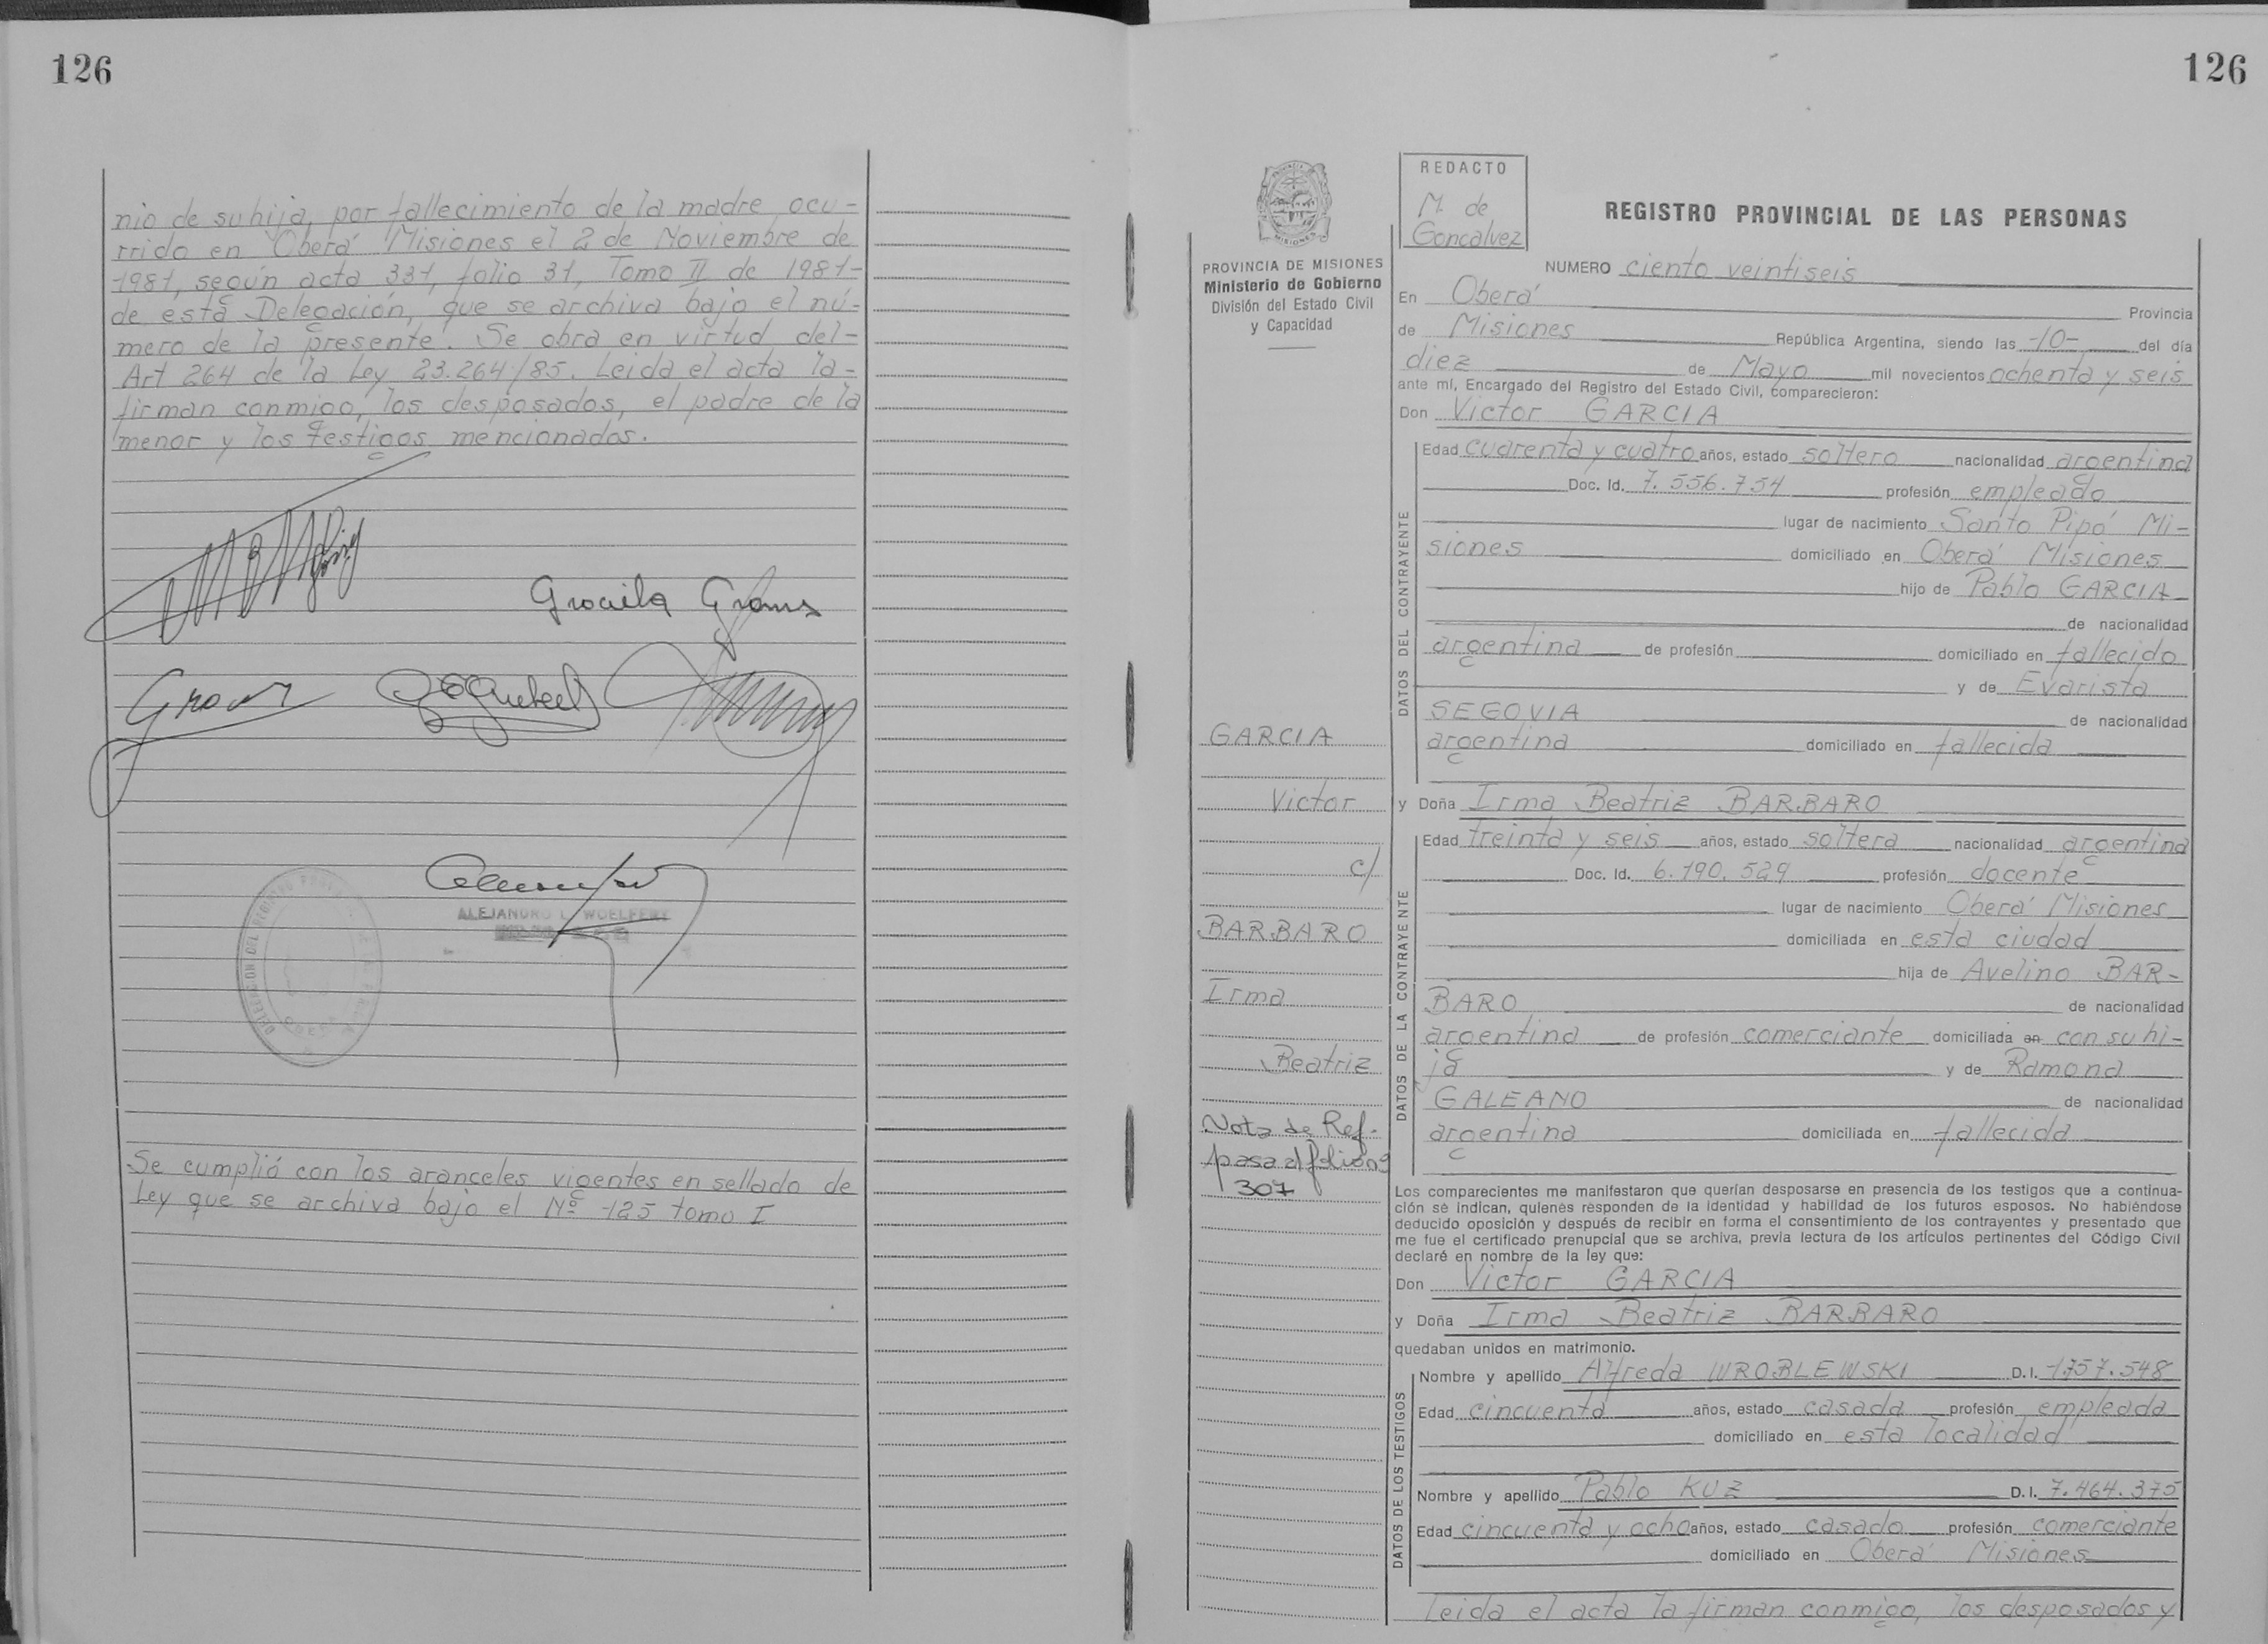 126
nio de su hija, por fallecimiento de la madre ocu-
rrido en Oberá Misiones el 2 de Noviembre de
1981, según acta 331, folio 31, Tomo II de 1981-
de esta Delegación, que se archiva bajo el nú-
mero de la presente. Se obra en virtud del-
Art 264 de la Ley 23.264/85. Leida el acta la-
firman conmigo, los desposados, el padre de la
menor y los testigos mencionados.
ALEJANDRO L. WOELFERT
Se cumplió con los aranceles vigentes en sellado de
Ley que se archiva bajo el Nº 125 tomo I
126
PROVINCIA DE MISIONES
Ministerio de Gobierno
División del Estado Civil
y Capacidad
GARCIA
Victor
c/
BARBARO
Irma
Beatriz
Nota de Ref.
pasa al folio nº
307
REDACTO
M. de
Goncalvez
REGISTRO PROVINCIAL DE LAS PERSONAS
NUMERO ciento veintiseis
En Oberá Provincia
de Misiones República Argentina, siendo las -10- del día
diez de Mayo mil novecientos ochenta y seis
ante mí, Encargado del Registro del Estado Civil, comparecieron:
Don Victor GARCIA
DATOS DEL CONTRAYENTE
Edad cuarenta y cuatro años, estado soltero nacionalidad argentina
Doc. Id. 7.556.754 profesión empleado
lugar de nacimiento Santo Pipó Mi-
siones domiciliado en Oberá Misiones
hijo de Pablo GARCIA
de nacionalidad
argentina de profesión domiciliado en fallecido
y de Evarista
SEGOVIA de nacionalidad
argentina domiciliado en fallecida
y Doña Irma Beatriz BARBARO
DATOS DE LA CONTRAYENTE
Edad treinta y seis años, estado soltera nacionalidad argentina
Doc. Id. 6.190.529 profesión docente
lugar de nacimiento Oberá Misiones
domiciliada en esta ciudad
hija de Avelino BAR-
BARO de nacionalidad
argentina de profesión comerciante domiciliada en con su hi-
ja y de Ramona
GALEANO de nacionalidad
argentina domiciliada en fallecida
Los comparecientes me manifestaron que querían desposarse en presencia de los testigos que a continua-
ción se indican, quienes responden de la identidad y habilidad de los futuros esposos. No habiéndose
deducido oposición y después de recibir en forma el consentimiento de los contrayentes y presentado que
me fue el certificado prenupcial que se archiva, previa lectura de los artículos pertinentes del Código Civil
declaré en nombre de la ley que:
Don Victor GARCIA
y Doña Irma Beatriz BARBARO
quedaban unidos en matrimonio.
DATOS DE LOS TESTIGOS
Nombre y apellido Alfreda WROBLEWSKI D.I. 1.757.548
Edad cincuenta años, estado casada profesión empleada
domiciliado en esta localidad
Nombre y apellido Pablo KUZ D.I. 7.464.375
Edad cincuenta y ocho años, estado casado profesión comerciante
domiciliado en Oberá Misiones
Leida el acta la firman conmigo, los desposados y